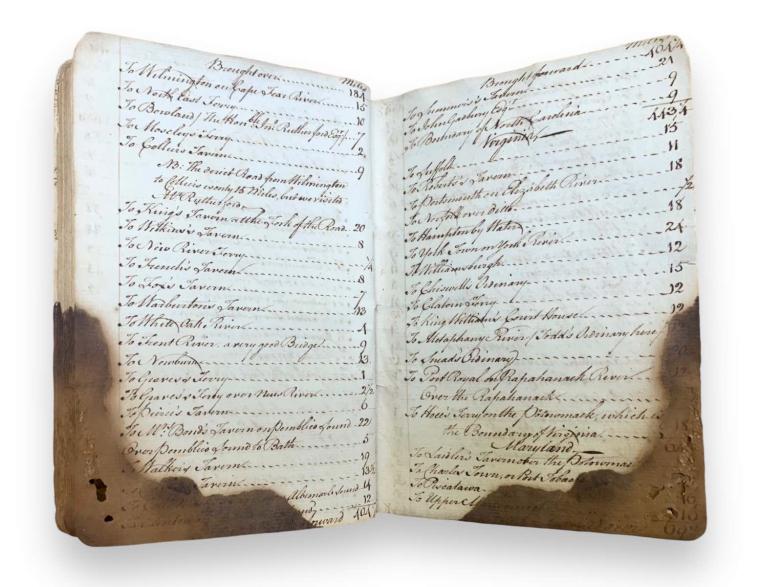 Brought over Miles
To Wilmington on Cape Fear River 184
To North East Ferry 15
To Bowland / The Hon. Jn. Rutherford Esq. 10
To Moseleys Ferry 7
To Collins Tavern 2
NB. The direct Road from Wilmington 9
to Collins is only 15 Miles, but we visited
Mr. Rutherford
To King's Tavern at the Fork of the Road 20
To Wilkins's Tavern 8
To New River Ferry
To French's Tavern 1/4
To Fox's Tavern 8
To Warburton's Tavern 7
To White Oak River 13
To Trent River a very good Bridge 4
To Newburn 9
To Graves's Ferry 13
To Graves's Ferry over Neus River 1
To Peirce's Tavern 2 1/2
To Mr. Bond's Tavern on Pemblico Sound 6
Over Pemblico Sound to Bath 22
To Walker's Tavern 5
Tavern 19
Albemarle Sound 13 1/2
14
12
Miles
Brought forward
To Tavern 21
To John Esqr. 9
To Boundary of North Carolina 9
Virginia
To Suffolk 15
To Roberts's Tavern 11
To Portsmouth on Elizabeth River 18
To Norfolk over ditto 1/2
To Hampton by Water 18
To York Town on York River 24
To Williamsburgh 12
To Chiswells Ordinary 15
To Claton Ferry 12
To King William Court House 12
To Mataphany River / Todd's Ordinary here
To Sneads Ordinary
To Port Royal on Rapahanack River
Over the Rapahanack
To Hoe's Ferry on the Potowmack, which is
the Boundary of Virginia
Maryland
To Laidler's Tavern over the Potowmack
To Charles Town, or Port Tobacco
To Piscatawa
To Upper